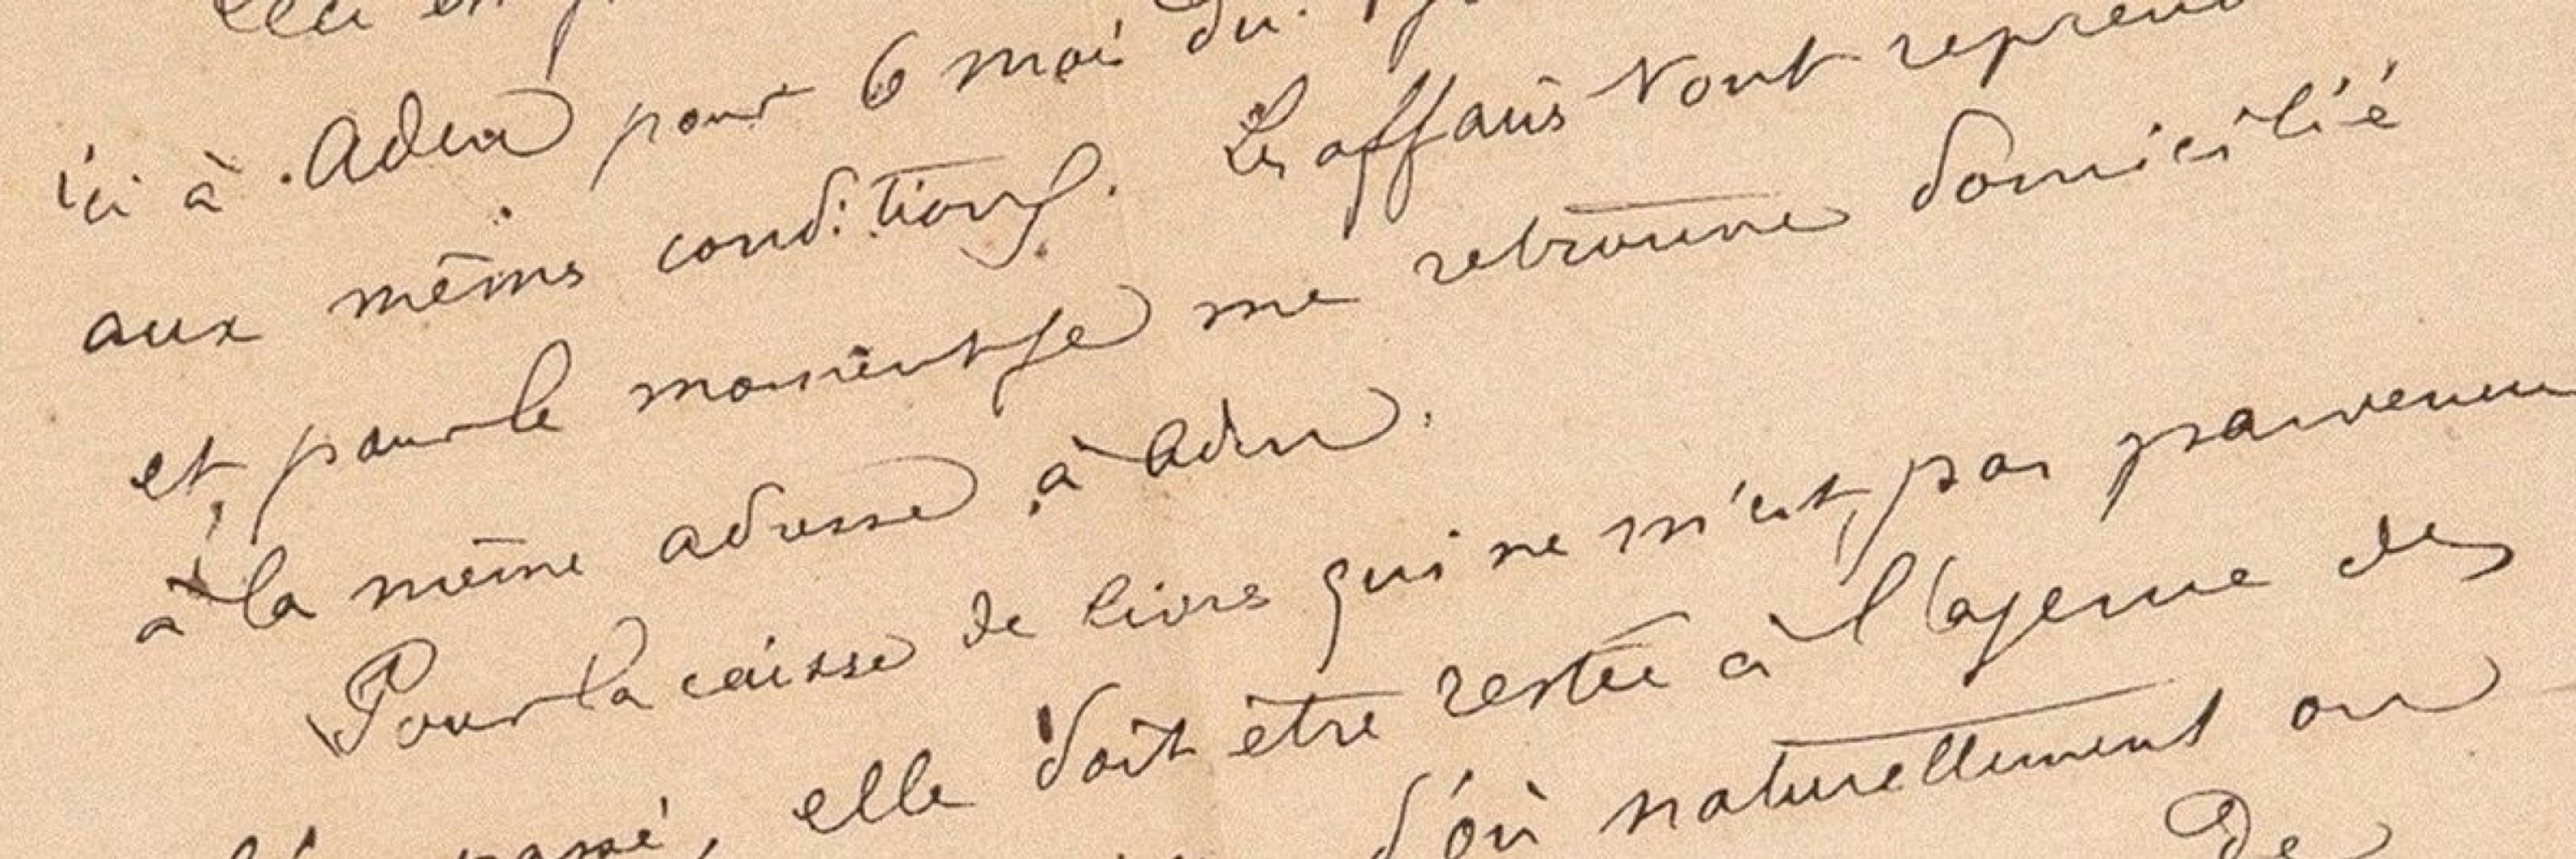 ici à Aden pour 6 mois du
aux mêmes conditions. Les affaires vont
et pour le moment je me retrouve domicilié
à la même adresse à Aden.
Pour la caisse de livres qui ne m'est pas parvenue
passé, elle doit être restée à l'agence des
d'où naturellement on
de